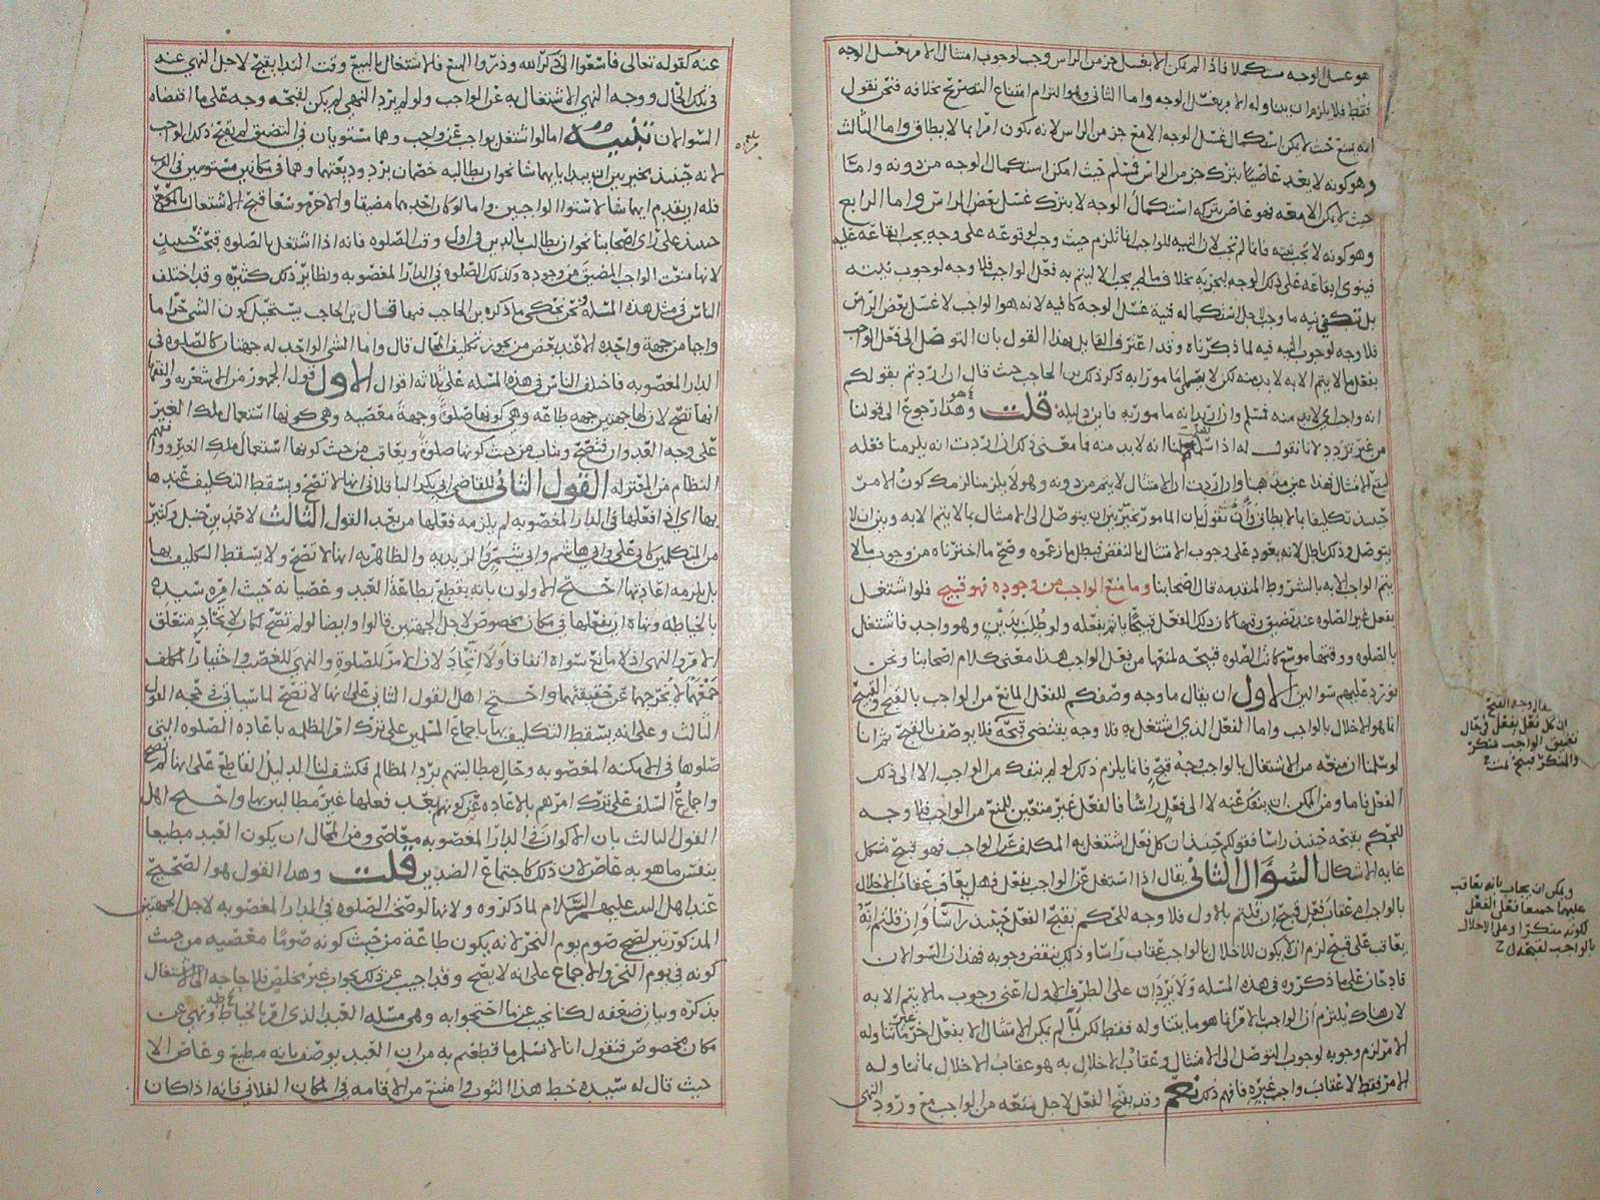 هو غسل الوجه مستكملا فاذا لم يمكن الا بغسل جزء من الراس وجب لوجوب امتثال الامر بغسل الوجه
فقط فلا يلزم ان يتناوله الامر بغسل الوجه واما الثاني وهو التزام امتناع التصريح بخلافه فنحن نقول
انه يمتنع حيث لا يمكن استكمال غسل الوجه الا مع جزء من الراس لانه يكون امرا بما لا يطاق واما الثالث
وهو كونه لا يعد عاصيا بترك جزء من الراس فمسلم حيث امكن استكمال الوجه من دونه واما
حيث لا يمكن الا معه فهو عاص بتركه استكمال الوجه لا بترك غسل بعض الراس واما الرابع
وهو كونه لا يجب نيته فانما لم تجب لان النية للواجب انما تلزم حيث وجب لوقوعه على وجه يجب ايقاعه عليه
فينوي ايقاعه على ذلك الوجه ليجزيه بخلاف ما لم يجب الا ليتم به فعل الواجب فلا وجه لوجوب نيته
بل تكفي نية ما وجب لاجل استكماله فنية غسل الوجه كافية لانه هو الواجب لا غسل بعض الراس
فلا وجه لوجوب النية فيه لما ذكرناه وقد اعترف القايل بهذا القول بان التوصل الى فعل الواجب
بفعل ما لا يتم الا به لا بد منه لكن لا مامورا به ذكر ذلك بن الحاجب حيث قال ان اردتم بقولكم
انه واجب اي لا بد منه فمسلم وان اريد انه مامور به فاين دليله قلت وهذا رجوع الى قولنا
من غير تردد لانا نقول له اذا انه لا بد منه فما معنى ذلك ان اردت انه يلزمنا فعله
ليقع الامتثال فهذا عين مذهبنا وان اردت ان الامتثال لا يتم من دونه وهو لا يلزمنا لزمك كون الامر
حينئذ تكليفا بما لا يطاق وان نقول بان المامور مخير بين ان يتوصل الى الامتثال بما لا يتم الا به وبين ان لا
يتوصل وذلك باطل لانه يعود على وجوب الامتثال بالنقض فبطل ما زعموه وصح ما اخترناه من وجوب ما لا
يتم الواجب الا به بالشروط المتقدمه قال اصحابنا وما منع الواجب من وجوده فهو قبيح فلو اشتغل
بفعل غير الصلوه عند تضيق وقتها كان ذلك الفعل قبيحا ياثم بفعله ولو طلب بدين وهو واجب فاشتغل
بالصلوه ووقتها موسع كانت الصلوه قبيحه لمنعها من فعل الواجب هذا معنى كلام اصحابنا ونحن
نورد عليهم سوالين الاول ان يقال ما وجه وصفكم للفعل المانع من الواجب بالقبح والقبيح
انما هو الاخلال بالواجب واما الفعل الذي اشتغل به فلا وجه يقتضي قبحه فلا يوصف بالقبح ثم انا
لو سلمنا ان منعه من الاشتغال بالواجب وجه قبح فانما يلزم ذلك لو لم ينفك من الواجب الا الى ذلك
الفعل فاما ومن الممكن ان ينفك عنه لا الى فعل راسا فالفعل غير متعين للمنع من الواجب فلا وجه
للحكم بقبحه حينئذ راسا فقولكم حينئذ ان كل فعل اشتغل به المكلف عن الواجب فهو قبيح مشكل
غاية الاشكال السؤال الثاني يقال اذا اشتغل عن الواجب بفعل فهل يعاقب عقاب الاخلال
بالواجب ام عقاب فعل قبيح ان قلتم بالاول فلا وجه للحكم بقبح الفعل حينئذ راسا وان قلتم انه
يعاقب على قبيح لزم ان لا يكون للاخلال بالواجب عقاب راسا وذلك ينقض وجوبه فهذان السوالان
قادحان على ما ذكروه في هذه المسله ولا يردان على الطرف الاول اعني وجوب ما لا يتم الا به
لان هناك يلتزم ان الواجب بالامر انما هو ما يتناوله فقط لكن لما لم يمكن الامتثال الا بفعل اخر غير ما تناوله
الامر لزم وجوبه لوجوب التوصل الى الامتثال وعقاب الاخلال به هو عقاب الاخلال بما تناوله
الامر فقط لا عقاب واجب غيره فافهم ذلك نعم وقد يقبح الفعل لاجل منعه من الواجب مع ورود النهي
يقال وجه القبح
ان كل فعل يفعل في حال
تضيق الواجب منكر
والمنكر قبيح تمت
ويمكن ان يجاب بانه يعاقب
عليهما جميعا فعلى الفعل
لكونه منكرا وعلى الاخلال
بالواجب لقبحه
عنه كقوله تعالى فاسعوا الى ذكر الله وذروا البيع فالاشتغال بالبيع وقت الندا يقبح لاجل النهي عنه
في تلك الحال ووجه النهي الاشتغال به عن الواجب ولو لم يرد النهي لم يكن لقبحه وجه على ما اقتضاه
السوالان تنبيه اما لو اشتغل بواجب عن واجب وهما مستويان في التضيق لم يقبح ذلك الواجب
لانه حينئذ مخير بين ان يبدا بايهما شا نحو ان يطالبه خصمان برد وديعتهما وهما في مكانين مستويين في القرب
فله ان يقدم ايهما شا لاستوا الواجبين واما لو كان احدهما مضيقا والاخر موسعا قبح الاشتغال بالموسع
حينئذ على راي اصحابنا نحو ان يطالب بالدين في اول وقت الصلوه فانه اذا اشتغل بالصلوه قبحت حينئذ
لانها منعت الواجب المضيق من وجوده وكذلك الصلوه في الدار المغصوبه ونظاير ذلك كثيره وقد اختلف
الناس في مثل هذه المسله ونحن نحكي ما ذكره بن الحاجب فيها قال بن الحاجب يستحيل كون الشي حراما
واجبا من جهة واحده الا عند بعض من يجوز تكليف المحال قال واما الشي الواحد له جهتان كالصلوه في
الدار المغصوبه فاختلف الناس في هذه المسله على ثلاثه اقوال الاول قول الجمهور من الاشعريه والفقها
انها تصح لان لها جهتين جهه طاعه وهي كونها صلوة وجهة معصيه وهي كونها استعمال ملك الغير
على وجه العدوان فتصح ويثاب من حيث كونها صلوة ويعاقب من حيث كونها استعمال ملك الغير ووافقهم
النظام من المعتزله القول الثاني للقاضي ابي بكر الباقلاني انها لا تصح ويسقط التكليف عندها
بها اي اذا فعلها في الدار المغصوبه لم يلزمه فعلها من بعد القول الثالث لاحمد بن حنبل وكثير
من المتكلمين كابي علي وابي هاشم وابي شمر والزيديه والظاهريه انها لا تصح ولا يسقط التكليف بها
بل يلزمه اعادتها احتج الاولون بانه يقطع بطاعة العبد وعصيانه حيث امره سيده
بالخياطه ونهاه ان يفعلها في مكان مخصوص لاجل الجهتين قالوا وايضا لو لم تصح لكان لاتحاد متعلق
الامر والنهي اذ لا مانع سواه اتفاقا ولا اتحاد لان الامر للصلوة والنهي للغصب واختيار المكلف
جمعهما لا يخرجهما عن حقيقتهما واحتج اهل القول الثاني على انها لا تصح لما سياتي في حجه القول
الثالث وعلى انه يسقط التكليف بها باجماع المسلمين على ترك امر الظلمه باعاده الصلوه التي
صلوها في الامكنه المغصوبه وحال مطالبتهم برد المظالم فكشف لنا الدليل القاطع على انها لم تصح
واجماع السلف على ترك امرهم بالاعاده عن كونهم بعد فعلها غير مطالبين بها واحتج اهل
القول الثالث بان الاكوان في الدار المغصوبه معاصي ومن المحال ان يكون العبد مطيعا
بنفس ما هو به عاص لان ذلك كاجتماع الضدين قلت وهذا القول هو الصحيح
عند اهل البيت عليهم السلام لما ذكروه ولانها لو صحت الصلوه في الدار المغصوبه لاجل الجهتين
المذكورتين لصح صوم يوم النحر لانه يكون طاعة من حيث كونه صوما معصيه من حيث
كونه في يوم النحر والاجماع على انه لا يصح وقد اجيب عن ذلك بجواب غير مخلص فلا حاجه الى الاشتغال
بذكره وبيان ضعفه لكنا نجيب عن ما احتجوا به وهي مسئله العبد الذي امر بالخياطه ونهي عن
مكان مخصوص فنقول انا لا نسلم ما قطعتم به من ان العبد يوصف بانه مطيع وعاص الا
حيث قال له سيده خط هذا الثوب وامتنع من الاقامه في المكان الفلاني فانه اذا كان